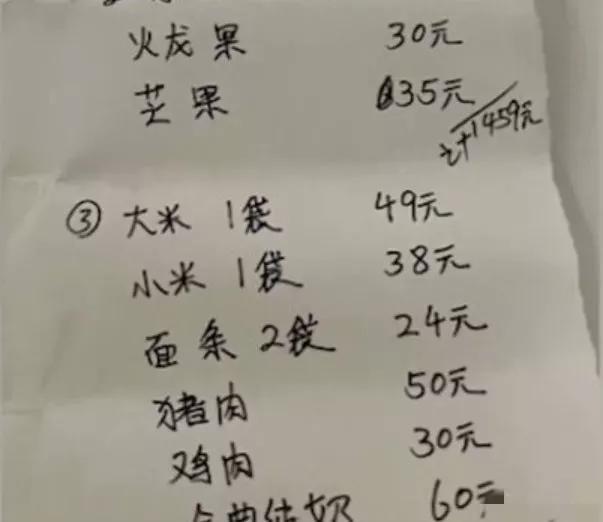 火龙果 30元
芒果 35元
计1459元
③ 大米 1袋 49元
小米 1袋 38元
面条 2袋 24元
猪肉 50元
鸡肉 30元
纯奶 60元